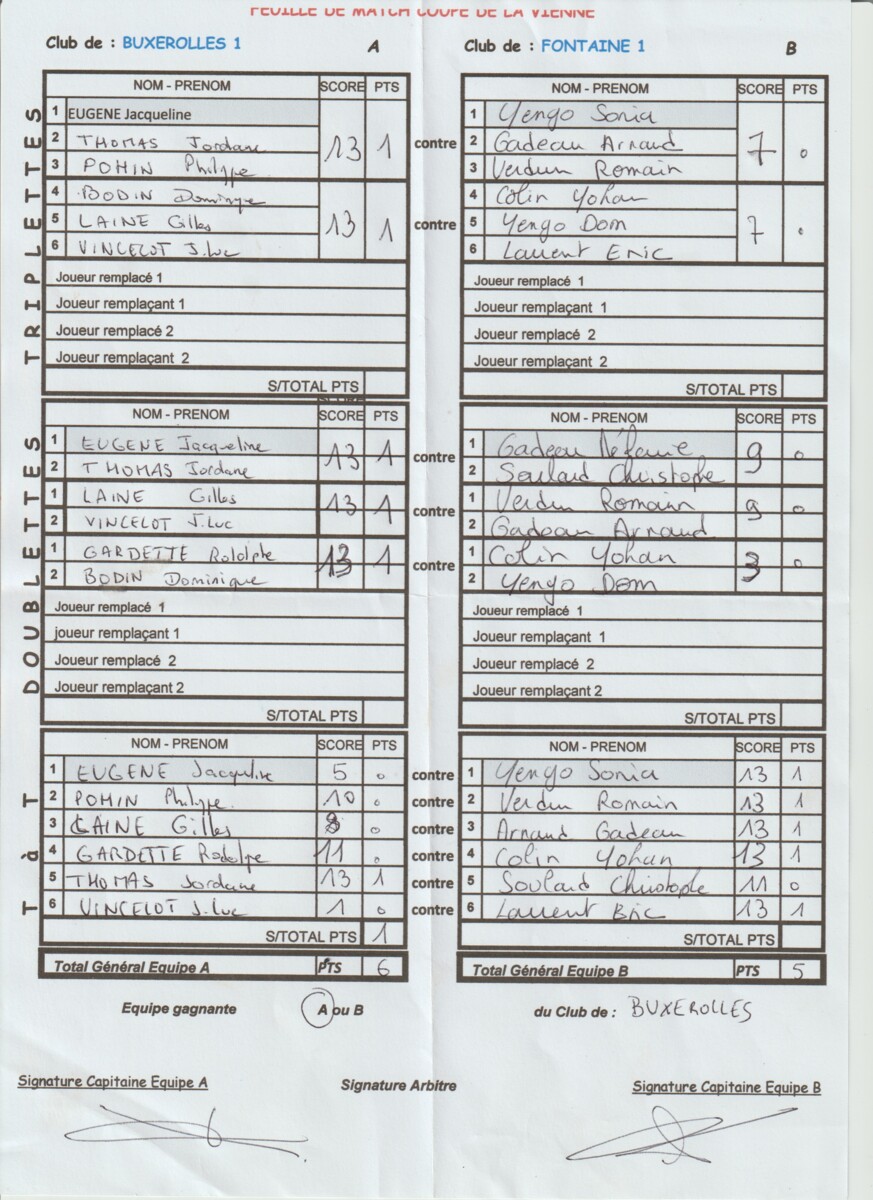 FEUILLE DE MATCH COUPE DE LA VIENNE
Club de : BUXEROLLES 1 A Club de : FONTAINE 1 B
TRIPLETTES
NOM - PRENOM SCORE PTS NOM - PRENOM SCORE PTS
1 EUGENE Jacqueline 1 Yengo Sonia
2 THOMAS Jordane 13 1 contre 2 Gadeau Arnaud 7 0
3 POHIN Philippe 3 Verdun Romain
4 BODIN Dominique 4 Colin Yohan
5 LAINE Gilles 13 1 contre 5 Yengo Dom 7 0
6 VINCELOT J.Luc 6 Laurent Eric
Joueur remplacé 1 Joueur remplacé 1
Joueur remplaçant 1 Joueur remplaçant 1
Joueur remplacé 2 Joueur remplacé 2
Joueur remplaçant 2 Joueur remplaçant 2
S/TOTAL PTS S/TOTAL PTS
DOUBLETTES
NOM - PRENOM SCORE PTS NOM - PRENOM SCORE PTS
1 EUGENE Jacqueline 13 1 contre 1 Gadeau 9 0
2 THOMAS Jordane 2 Soulard Christophe
1 LAINE Gilles 13 1 contre 1 Verdun Romain 9 0
2 VINCELOT J.Luc 2 Gadeau Arnaud
1 GARDETTE Rodolphe 13 1 contre 1 Colin Yohan 3 0
2 BODIN Dominique 2 Yengo Dom
Joueur remplacé 1 Joueur remplacé 1
joueur remplaçant 1 Joueur remplaçant 1
Joueur remplacé 2 Joueur remplacé 2
Joueur remplaçant 2 Joueur remplaçant 2
S/TOTAL PTS S/TOTAL PTS
T à T
NOM - PRENOM SCORE PTS NOM - PRENOM SCORE PTS
1 EUGENE Jacqueline 5 0 contre 1 Yengo Sonia 13 1
2 POHIN Philippe 10 0 contre 2 Verdun Romain 13 1
3 LAINE Gilles 0 contre 3 Arnaud Gadeau 13 1
4 GARDETTE Rodolpe 11 0 contre 4 Colin Yohan 13 1
5 THOMAS Jordane 13 1 contre 5 Soulard Christophe 11 0
6 VINCELOT J.Luc 1 0 contre 6 Laurent Eric 13 1
S/TOTAL PTS 1 S/TOTAL PTS
Total Général Equipe A PTS 6 Total Général Equipe B PTS 5
Equipe gagnante A ou B du Club de : BUXEROLLES
Signature Capitaine Equipe A Signature Arbitre Signature Capitaine Equipe B